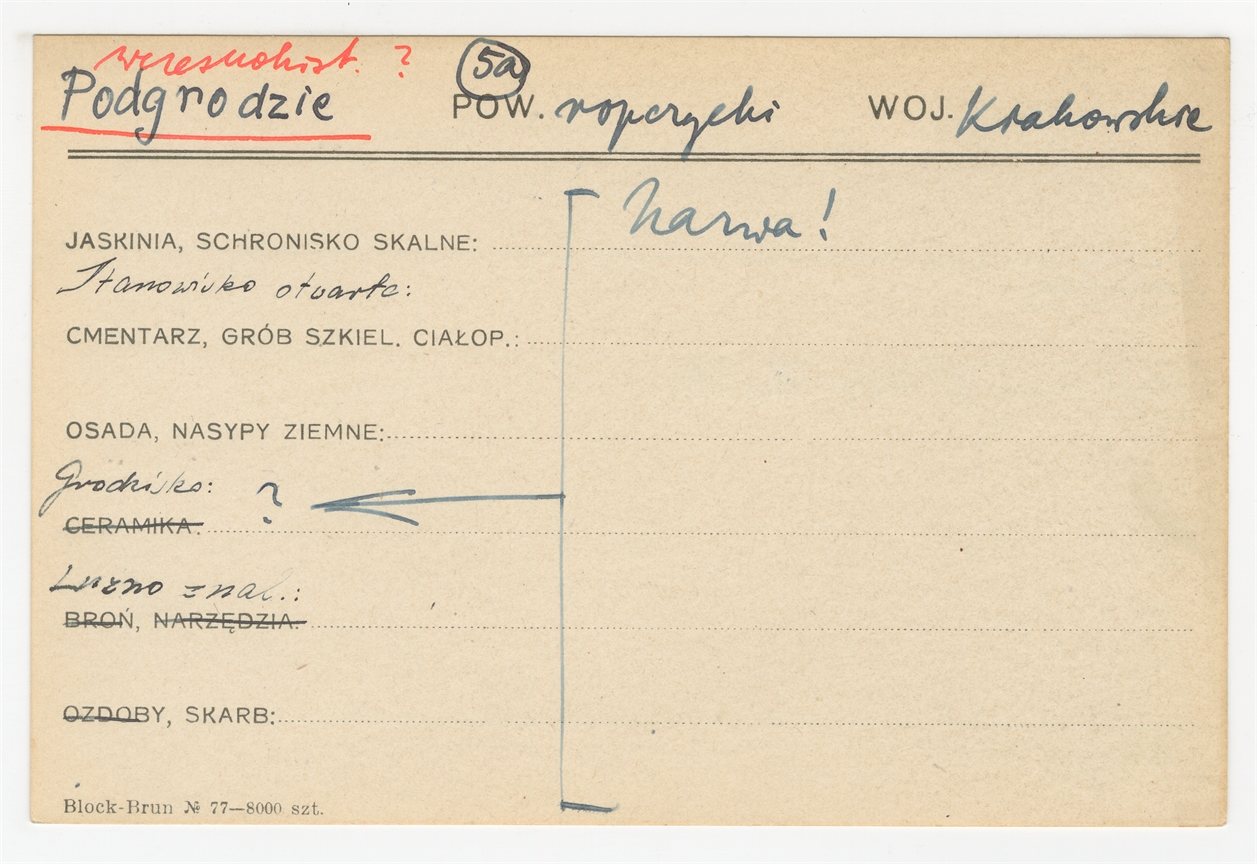 wczesnohist. ?
5a
Podgrodzie POW. ropczycki WOJ. Krakowskie
Nazwa!
JASKINIA, SCHRONISKO SKALNE:
Stanowisko otwarte:
CMENTARZ, GRÓB SZKIEL. CIAŁOP.:
OSADA, NASYPY ZIEMNE:
Grodzisko: ?
CERAMIKA:
Luźno znal.:
BROŃ, NARZĘDZIA:
OZDOBY, SKARB:
Block-Brun № 77—8000 szt.